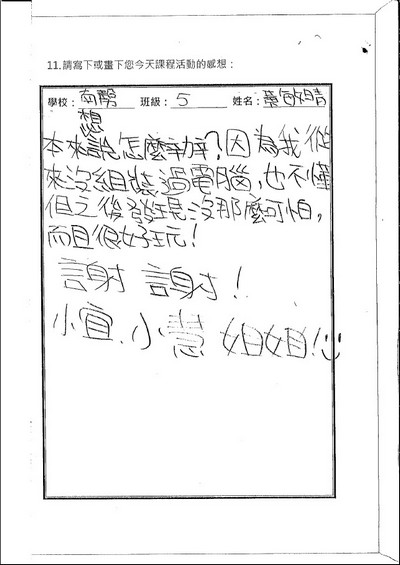 11.請寫下或畫下您今天課程活動的感想：
學校：南勢 班級：5 姓名：
想
本來說怎麼辦？因為我從
來沒組裝過電腦，也不懂
但之後發現沒那麼可怕，
而且很好玩！
謝謝！
小宣、小慧姐姐！